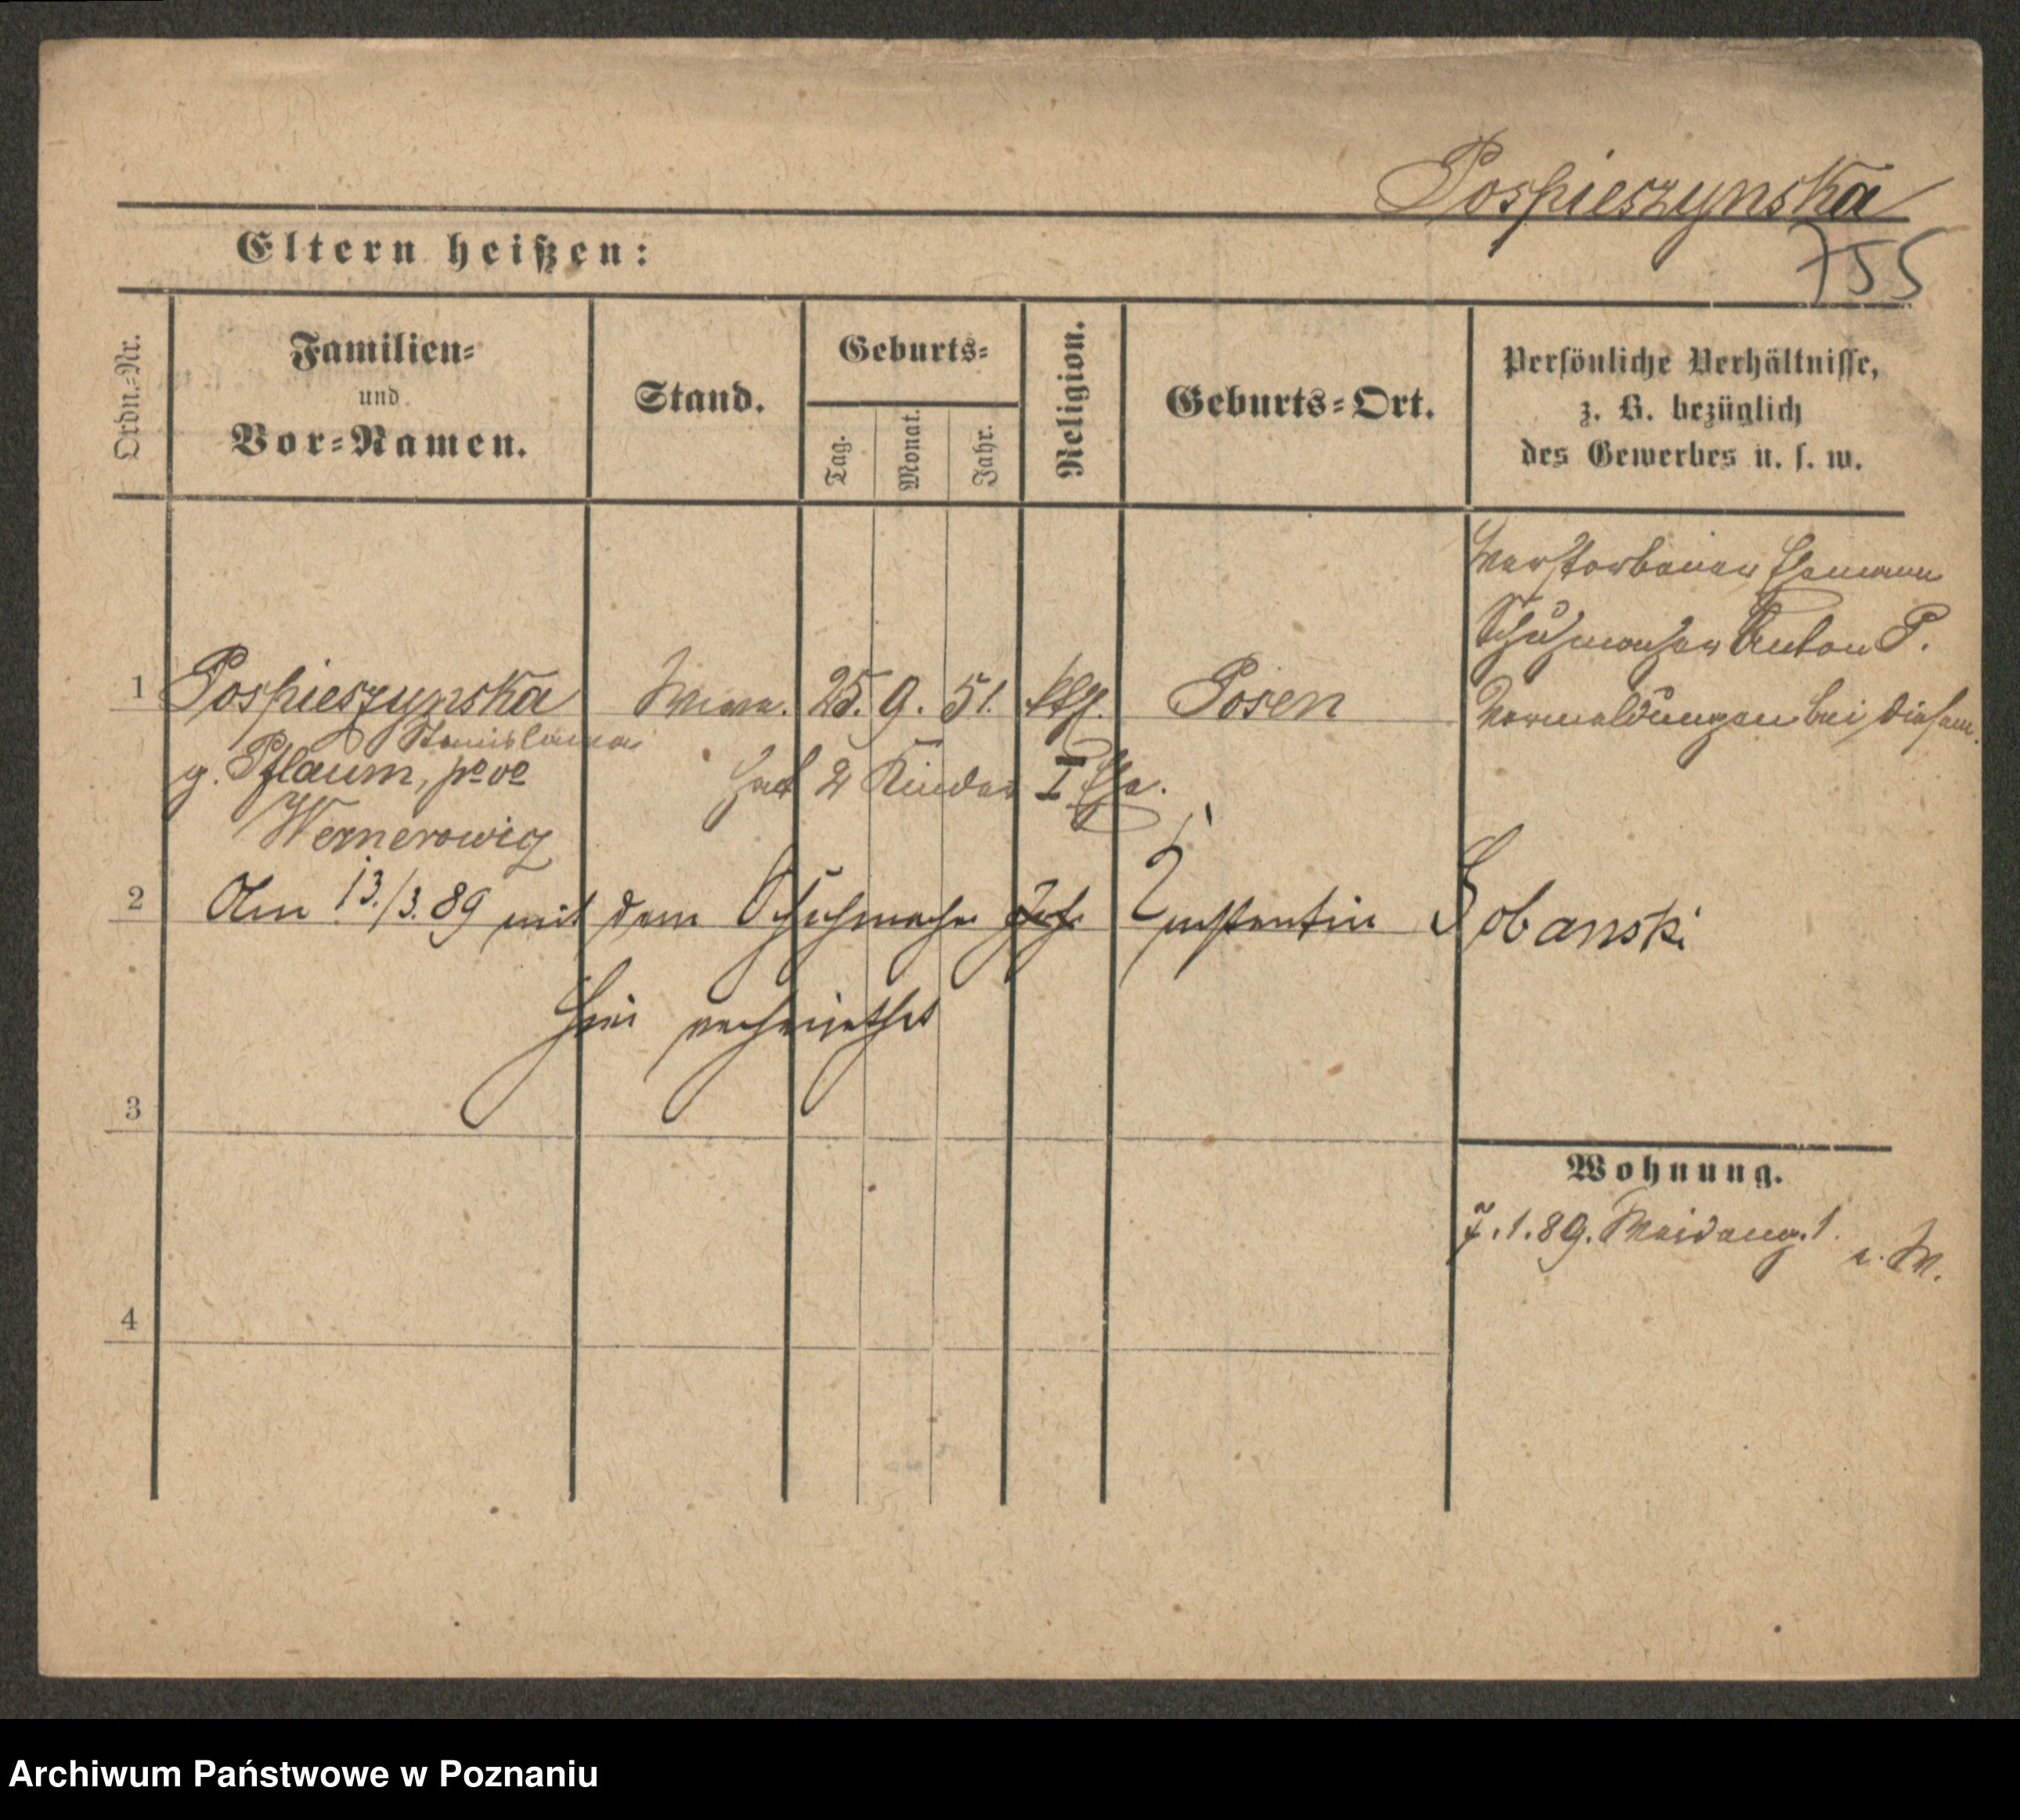 Pospieszynska
755
Eltern heißen:
Ordn.-Nr.
Familien-
und
Vor-Namen.
Stand.
Geburts-
Tag.
Monat.
Jahr.
Religion.
Geburts-Ort.
Persönliche Verhältnisse,
z. B. bezüglich
des Gewerbes u. s. w.
Verstorbener Ehemann
Schuhmacher Anton P.
Vermeldungen bei diesem.
1 Pospieszynska Wwe. 25. 9. 51. kth. Posen
Stanislawa
g. Pflaum, po vo hat 2 Kinder I Ehe.
Wernerowicz
2 Am 13./3. 89 mit dem Schuhmacher Constantin Sobanski
hier verheirathet
3
Wohnung.
7. 1. 89. Waideng. 1.
4
Archiwum Państwowe w Poznaniu